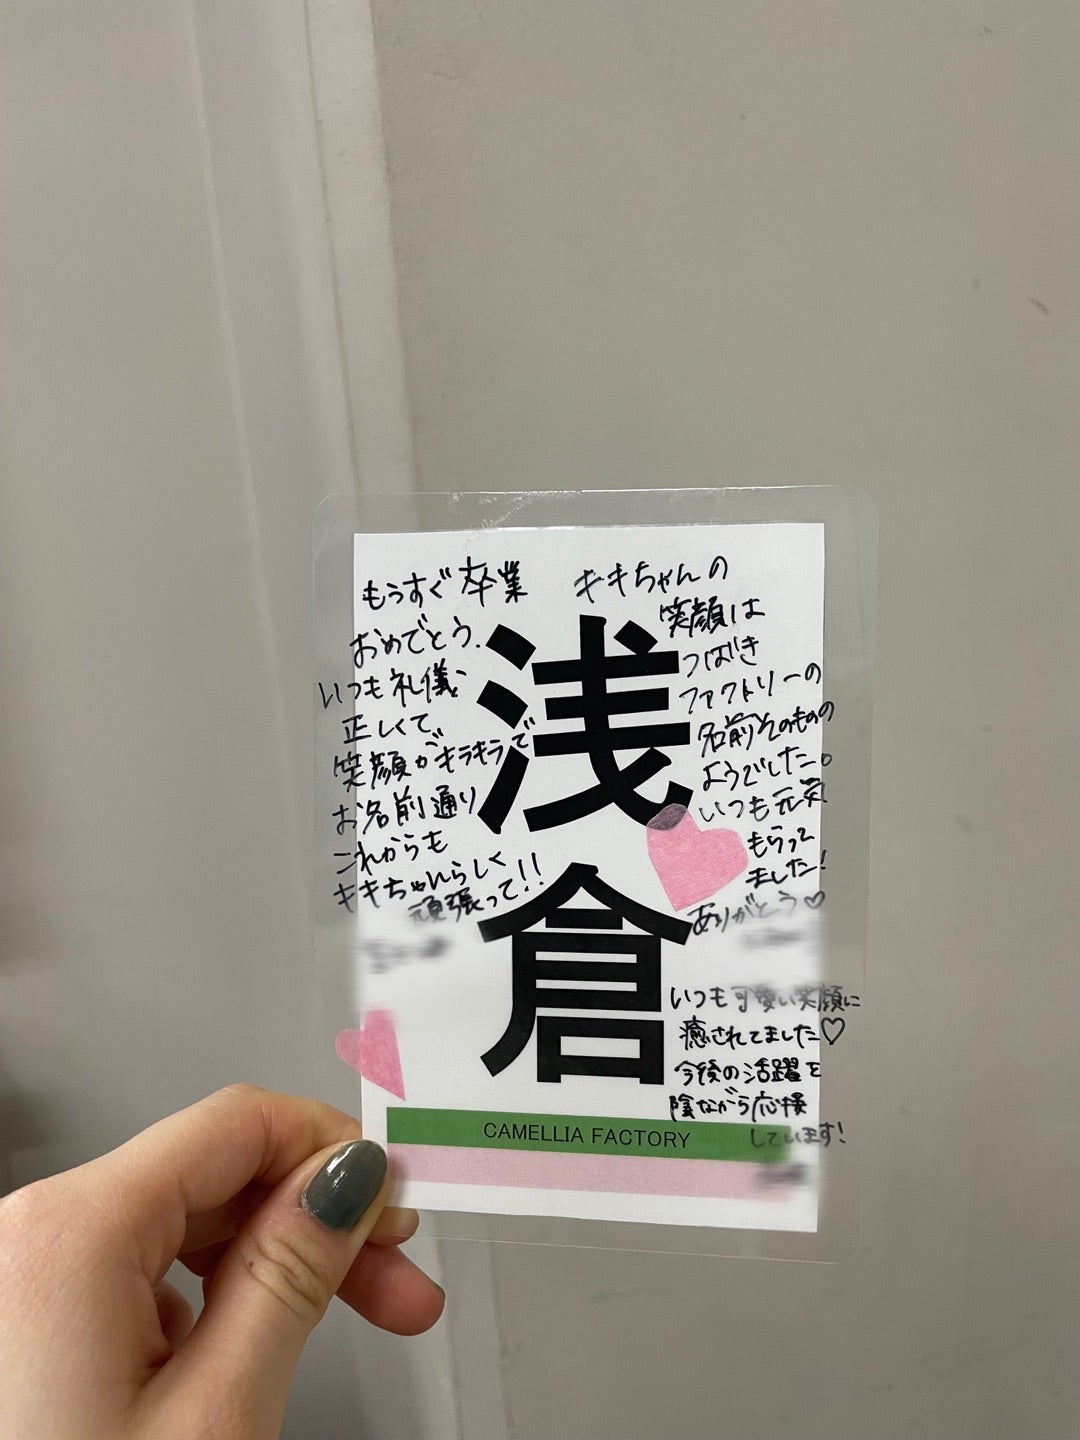 もうすぐ卒業
おめでとう.
いつも礼儀
正しくて
笑顔がキラキラで
お名前通り
これからも
キキちゃんらしく
頑張って!!
キキちゃんの
笑顔は
つばき
ファクトリーの
名前そのものの
ようでした。
いつも元気
もらって
ました!
ありがとう♡
いつも可愛い笑顔に
癒されてました♡
今後の活躍を
陰ながら応援
しています!
浅倉
CAMELLIA FACTORY